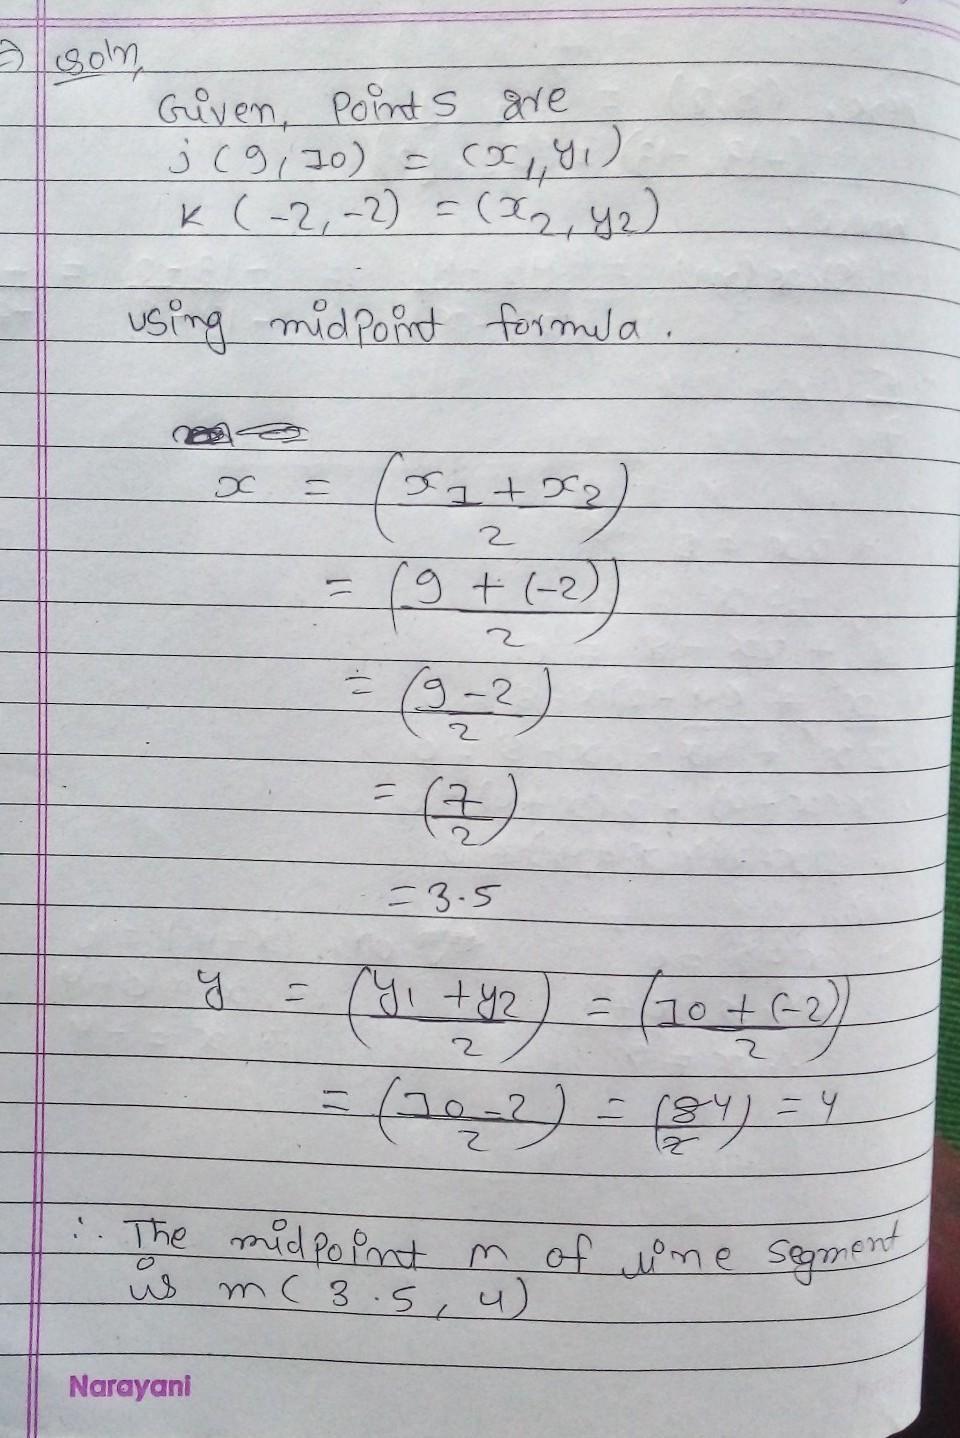 ⇒ soln,
Given, Points are
j (9, 10) = (x1, y1)
K (-2, -2) = (x2, y2)
using midPoint formula.
x = (x1 + x2 / 2)
= (9 + (-2) / 2)
= (9 - 2 / 2)
= (7 / 2)
= 3.5
y = (y1 + y2 / 2) = (10 + (-2) / 2)
= (10 - 2 / 2) = (8 4 / 2) = 4
∴ The midPoint m of line segment
is m ( 3.5, 4)
Narayani